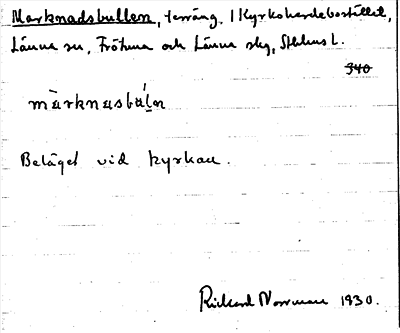 Marknadsbullen, terräng. 1 Kyrkoherdebostället,
Länna sn, Frötuna och Länna skg, Sthlms l.
340
màrknasbúl̥n
Beläget vid kyrkan.
Rickard Norrman 1930.